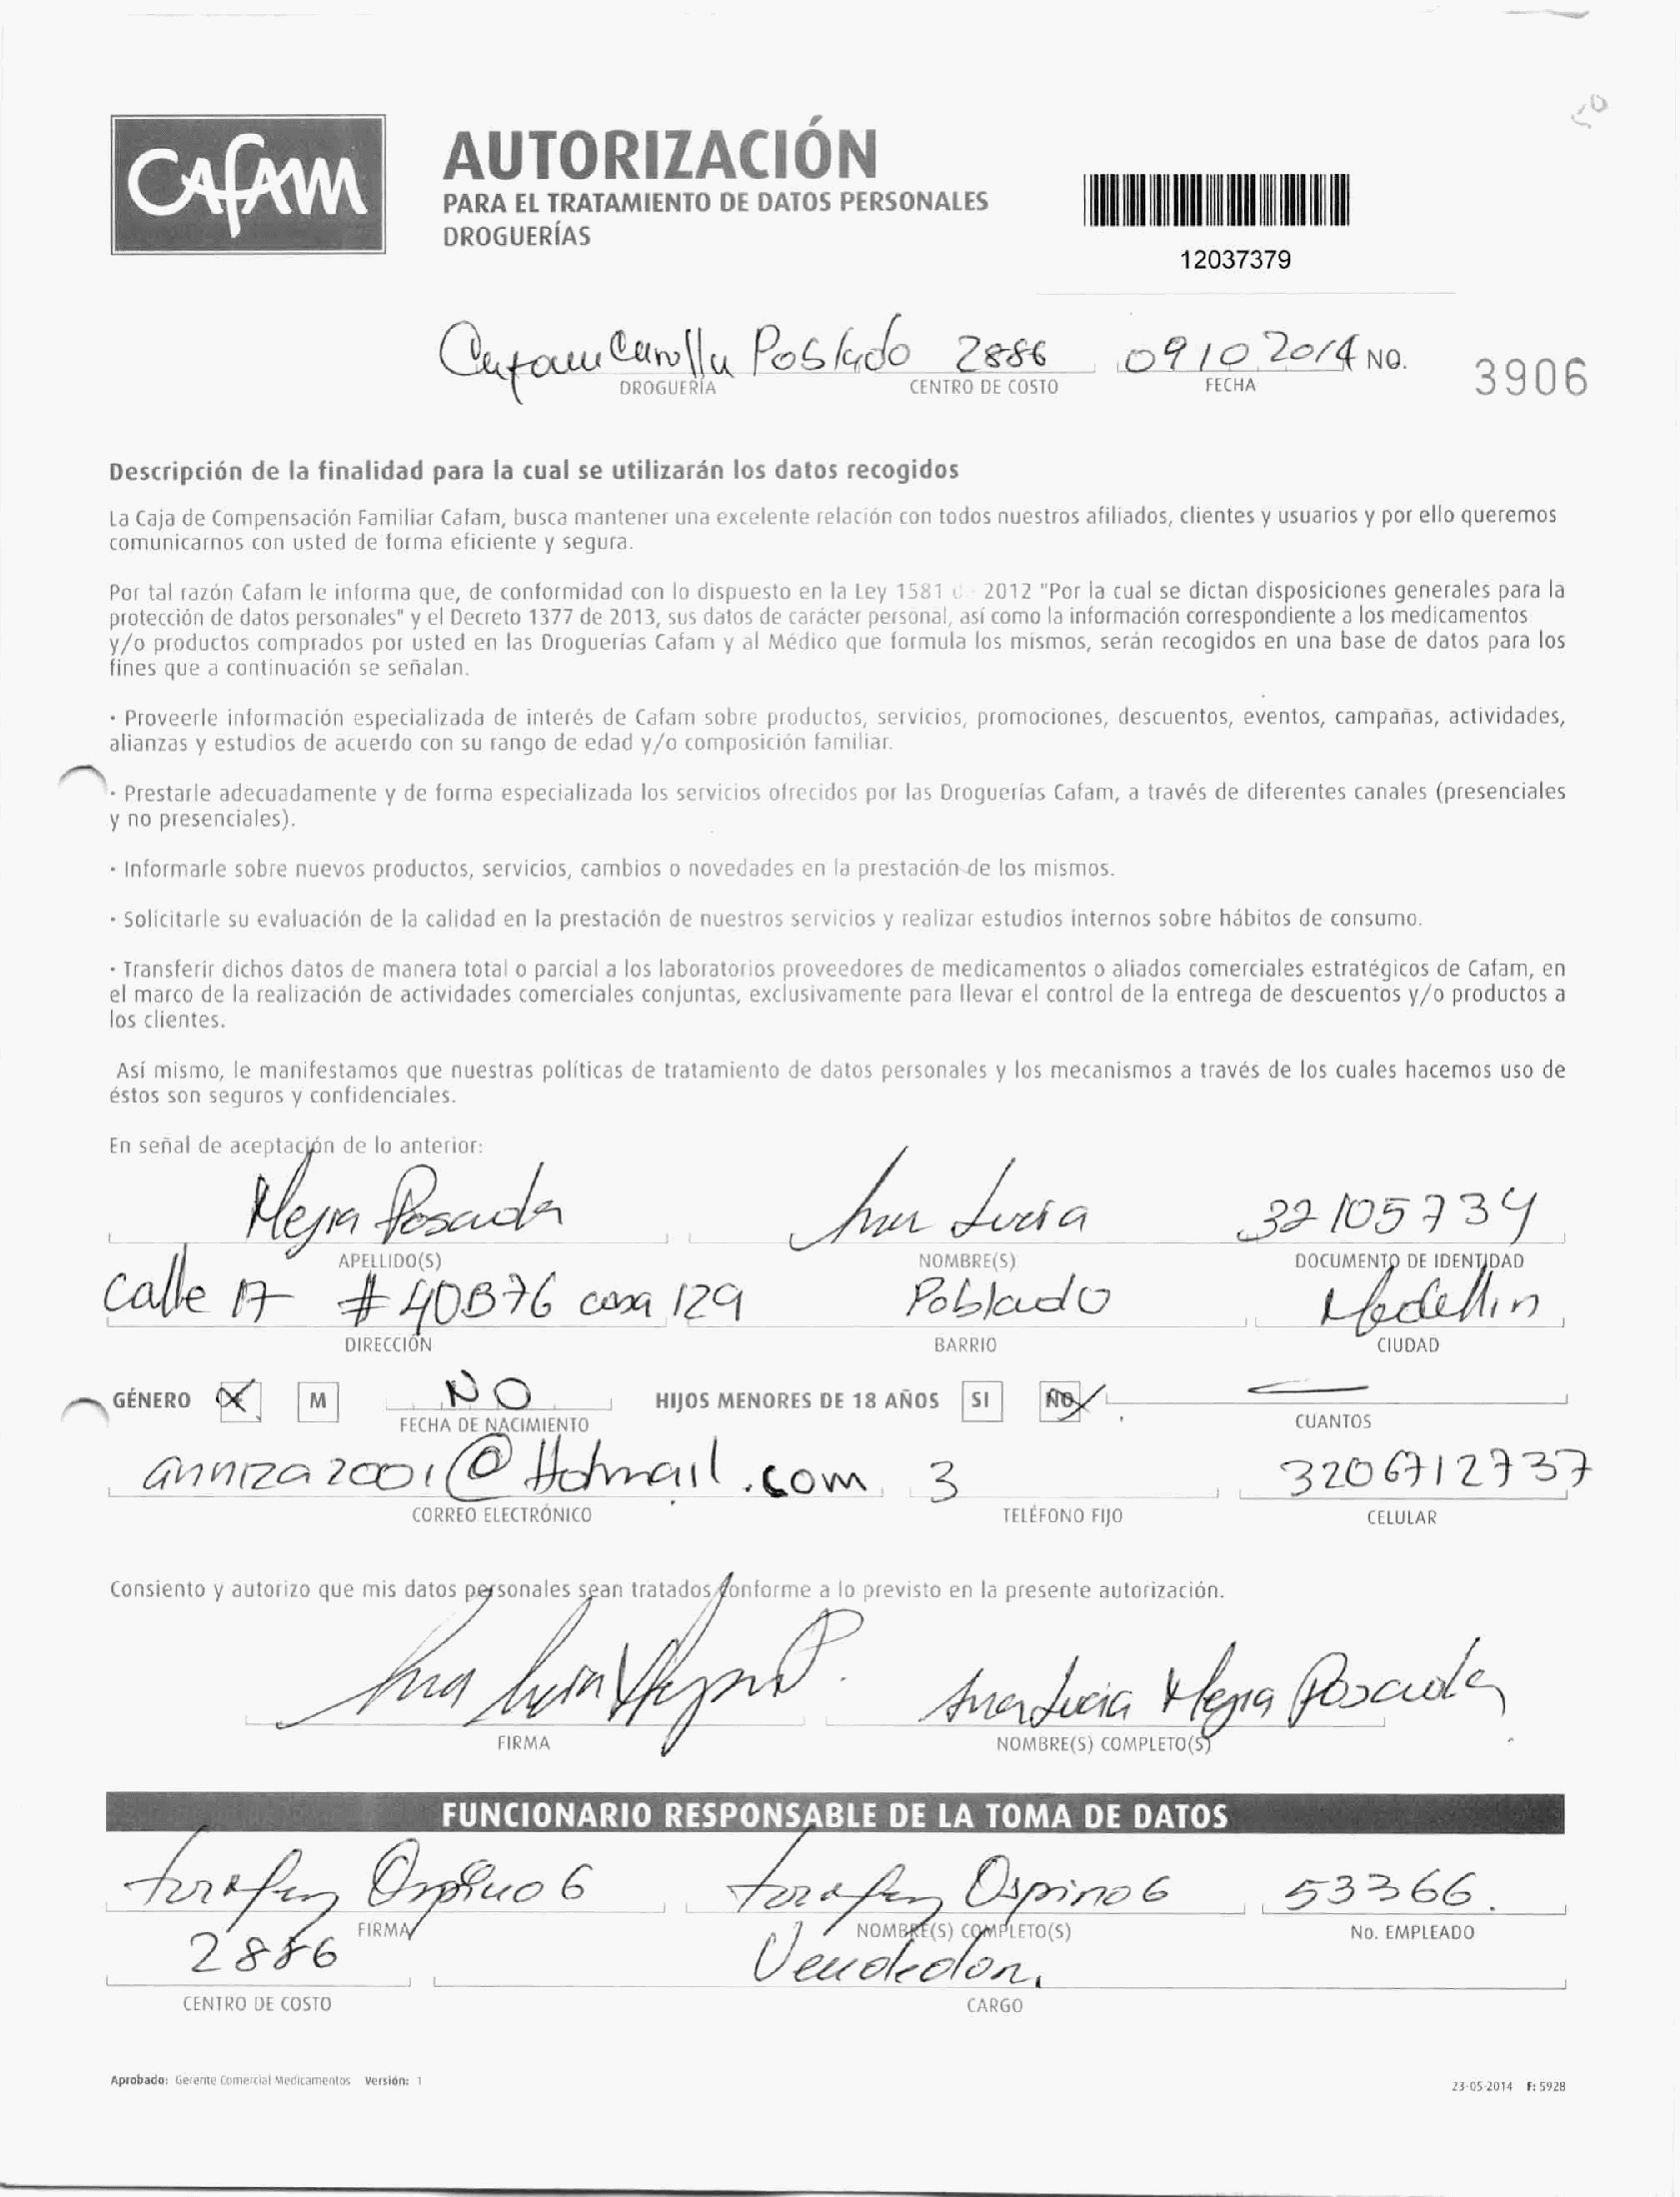 CAFAM
AUTORIZACIÓN
PARA EL TRATAMIENTO DE DATOS PERSONALES
DROGUERÍAS
12037379
Poblado 2886 09 10 2014 NO. 3906
DROGUERÍA CENTRO DE COSTO FECHA
Descripción de la finalidad para la cual se utilizarán los datos recogidos
La Caja de Compensación Familiar Cafam, busca mantener una excelente relación con todos nuestros afiliados, clientes y usuarios y por ello queremos
comunicarnos con usted de forma eficiente y segura.
Por tal razón Cafam le informa que, de conformidad con lo dispuesto en la Ley 1581 2012 "Por la cual se dictan disposiciones generales para la
protección de datos personales" y el Decreto 1377 de 2013, sus datos de carácter personal, así como la información correspondiente a los medicamentos
y/o productos comprados por usted en las Droguerías Cafam y al Médico que formula los mismos, serán recogidos en una base de datos para los
fines que a continuación se señalan.
· Proveerle información especializada de interés de Cafam sobre productos, servicios, promociones, descuentos, eventos, campañas, actividades,
alianzas y estudios de acuerdo con su rango de edad y/o composición familiar.
· Prestarle adecuadamente y de forma especializada los servicios ofrecidos por las Droguerías Cafam, a través de diferentes canales (presenciales
y no presenciales).
· Informarle sobre nuevos productos, servicios, cambios o novedades en la prestación de los mismos.
· Solicitarle su evaluación de la calidad en la prestación de nuestros servicios y realizar estudios internos sobre hábitos de consumo.
· Transferir dichos datos de manera total o parcial a los laboratorios proveedores de medicamentos o aliados comerciales estratégicos de Cafam, en
el marco de la realización de actividades comerciales conjuntas, exclusivamente para llevar el control de la entrega de descuentos y/o productos a
los clientes.
Así mismo, le manifestamos que nuestras políticas de tratamiento de datos personales y los mecanismos a través de los cuales hacemos uso de
éstos son seguros y confidenciales.
En señal de aceptación de lo anterior:
Mejia Posada Ana Lucia 32105734
APELLIDO(S) NOMBRE(S) DOCUMENTO DE IDENTIDAD
Calle 17 #40B76 casa 129 Poblado Medellin
DIRECCIÓN BARRIO CIUDAD
GÉNERO M NO HIJOS MENORES DE 18 AÑOS SI NO
FECHA DE NACIMIENTO CUANTOS
anniza2001@Hotmail.com 3 3206712737
CORREO ELECTRÓNICO TELÉFONO FIJO CELULAR
Consiento y autorizo que mis datos personales sean tratados conforme a lo previsto en la presente autorización.
Ana Lucia Mejia P. Ana Lucia Mejia Posada
FIRMA NOMBRE(S) COMPLETO(S)
FUNCIONARIO RESPONSABLE DE LA TOMA DE DATOS
Ospino G Ospino G 53366.
FIRMA NOMBRE(S) COMPLETO(S) No. EMPLEADO
2886 Vendedor.
CENTRO DE COSTO CARGO
Aprobado: Gerente Comercial Medicamentos Versión: 1
23-05-2014 F: 5928